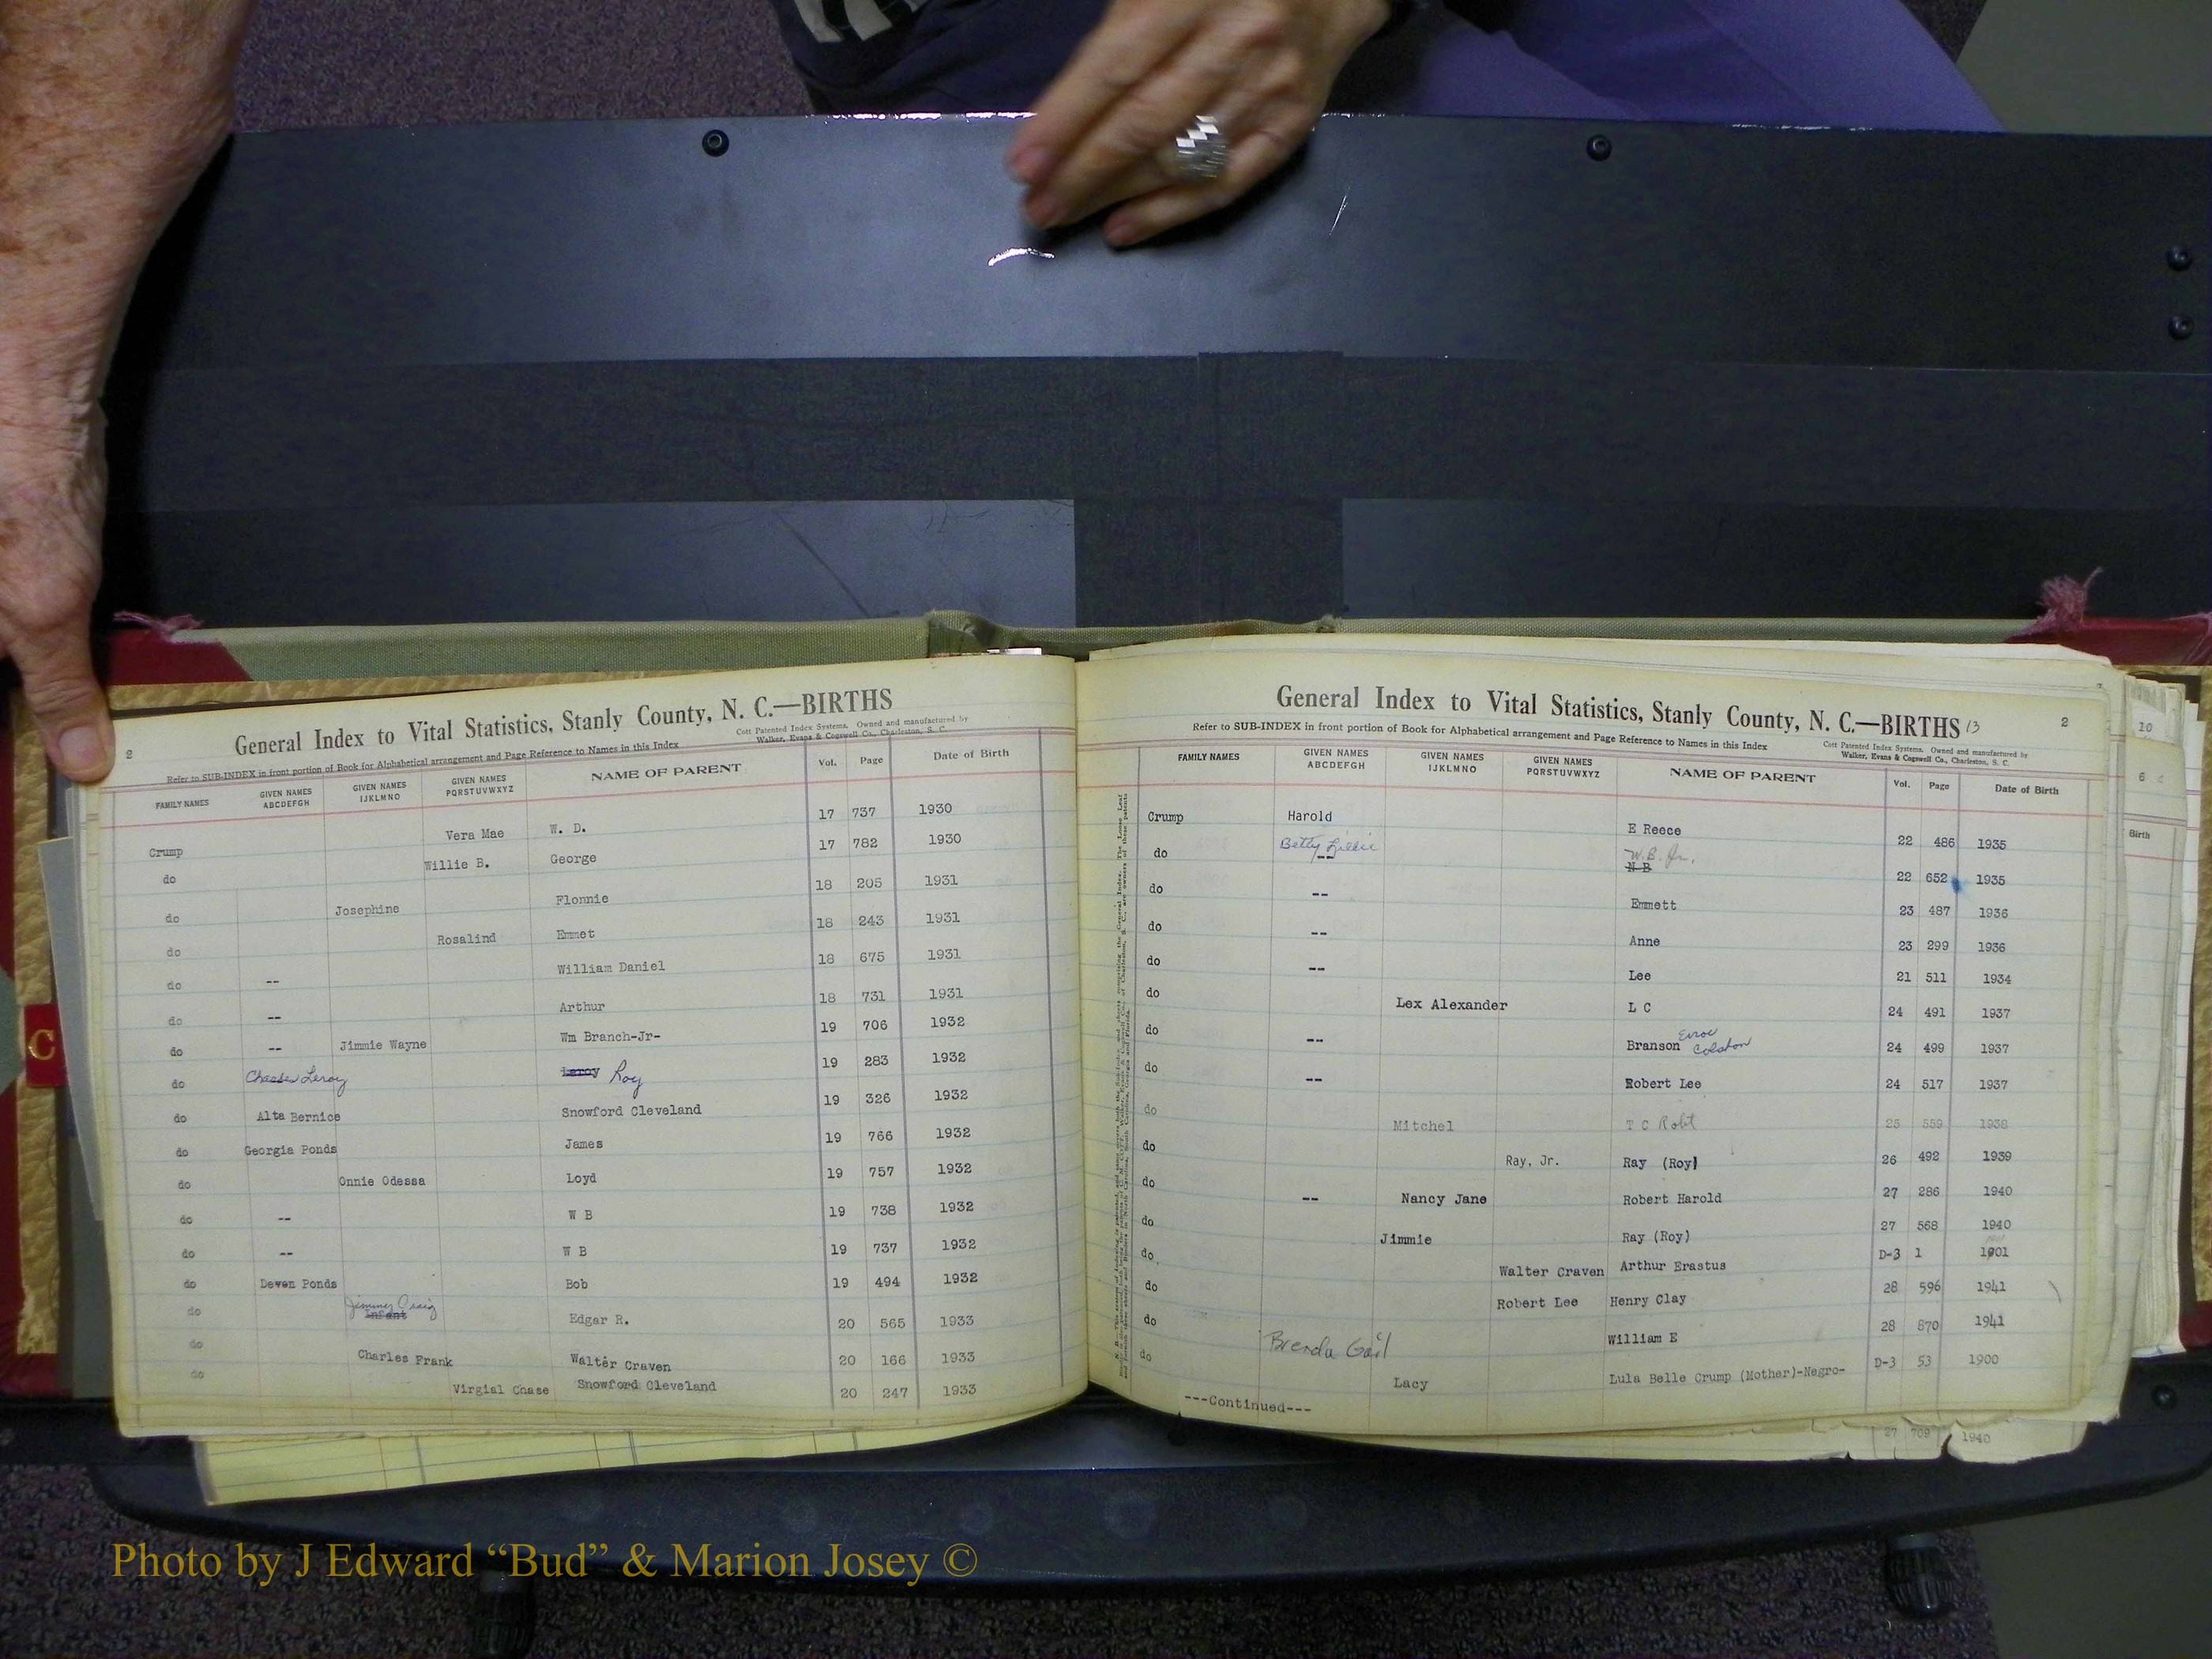 2
General Index to Vital Statistics, Stanly County, N. C.—BIRTHS
Refer to SUB-INDEX in front portion of Book for Alphabetical arrangement and Page Reference to Names in this Index
Cott Patented Index Systems. Owned and manufactured by
Walker, Evans & Cogswell Co., Charleston, S. C.
FAMILY NAMES GIVEN NAMES ABCDEFGH GIVEN NAMES IJKLMNO GIVEN NAMES PQRSTUVWXYZ NAME OF PARENT Vol. Page Date of Birth
Crump Vera Mae W. D. 17 737 1930
do Willie B. George 17 782 1930
do Josephine Flonnie 18 205 1931
do Rosalind Emmet 18 243 1931
do -- William Daniel 18 675 1931
do -- Arthur 18 731 1931
do -- Jimmie Wayne Wm Branch-Jr- 19 706 1932
do Leroy Leroy Roy 19 283 1932
do Alta Bernice Snowford Cleveland 19 326 1932
do Georgia Ponds James 19 766 1932
do Onnie Odessa Loyd 19 757 1932
do -- W B 19 738 1932
do -- W B 19 737 1932
do Deven Ponds Bob 19 494 1932
do Jimmy Craig Infant Edgar R. 20 565 1933
do Charles Frank Walter Craven 20 166 1933
do Virgial Chase Snowford Cleveland 20 247 1933
General Index to Vital Statistics, Stanly County, N. C.—BIRTHS 13 2
Refer to SUB-INDEX in front portion of Book for Alphabetical arrangement and Page Reference to Names in this Index
Cott Patented Index Systems. Owned and manufactured by
Walker, Evans & Cogswell Co., Charleston, S. C.
FAMILY NAMES GIVEN NAMES ABCDEFGH GIVEN NAMES IJKLMNO GIVEN NAMES PQRSTUVWXYZ NAME OF PARENT Vol. Page Date of Birth
Crump Harold E Reece 22 486 1935
do Betty Lillie -- W.B. Jr. N B 22 652 1935
do -- Emmett 23 487 1936
do -- Anne 23 299 1936
do -- Lee 21 511 1934
do Lex Alexander L C 24 491 1937
do -- Branson Colston 24 499 1937
do -- Robert Lee 24 517 1937
do Mitchel T C Robt 25 559 1938
do Ray, Jr. Ray (Roy) 26 492 1939
do -- Nancy Jane Robert Harold 27 286 1940
do Jimmie Ray (Roy) 27 568 1940
do Walter Craven Arthur Erastus D-3 1 1901
do Robert Lee Henry Clay 28 596 1941
do Brenda Gail William E 28 870 1941
do Lacy Lula Belle Crump (Mother)-Negro- D-3 53 1900
---Continued---
27 709 1940
10
6
Birth
C
Photo by J Edward “Bud” & Marion Josey ©